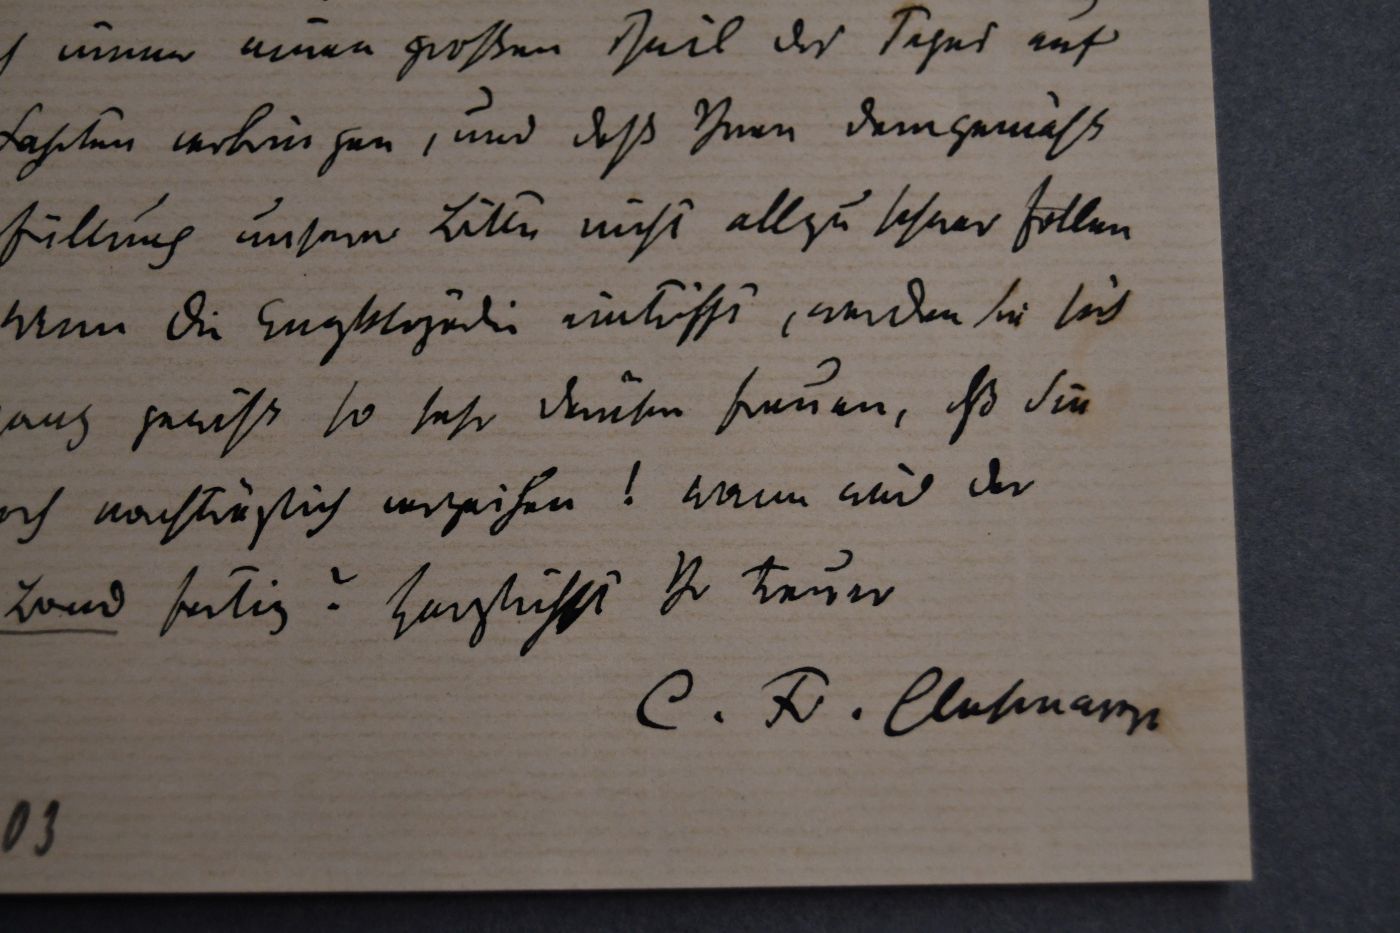 immer einen großen Theil des Tages auf
verbringen, und daß Ihnen demgemäß
füllung unserer Bitte nicht allzu schwer fallen
wenn die Enzyklopädie eintrifft, werden Sie sich
ganz gewiß so sehr darüber freuen, daß Sie
nachträglich verzeihen! wann wird der
Band fertig? Herzlichst Ihr treuer
C. Fr. Glasenapp
03